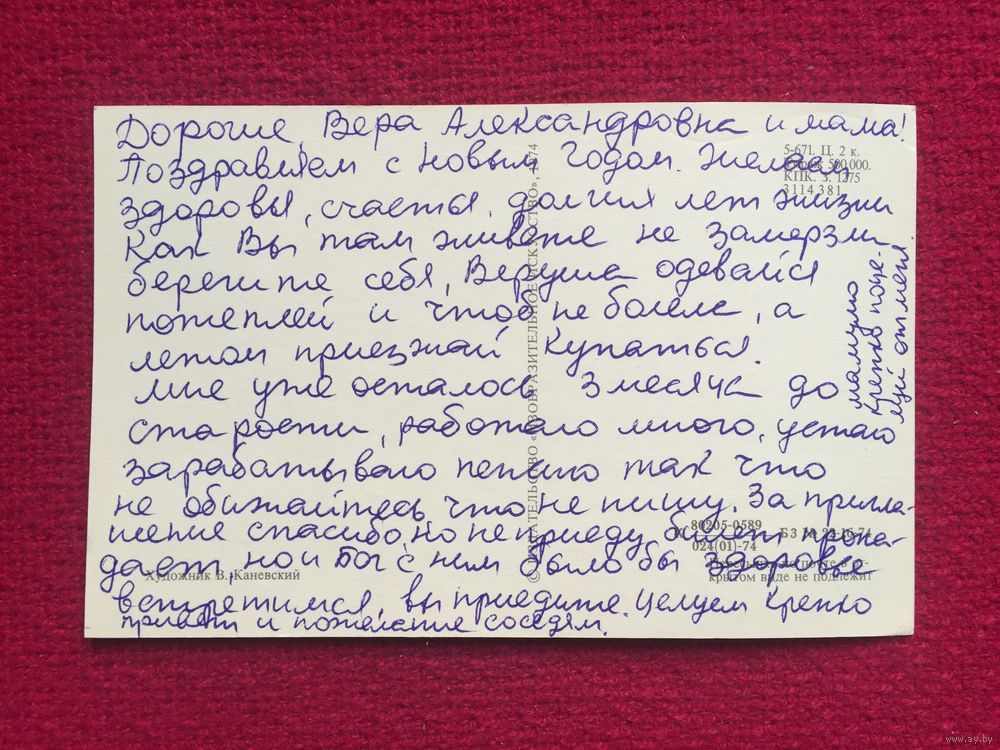 Дорогие, Вера Александровна и мама!
Поздравляем с новым годом. Желаем
здоровья, счастья, долгих лет жизни
Как Вы там живете не замерзли
берегите себя, Веруша одевайся
потеплей и чтоб не болела, а
летом приезжай купаться.
мне уже осталось 3 месяца до
старости, работаю много, устаю
зарабатываю пенсию так что
не обижайтесь что не пишу. За пригла-
шение спасибо, но не приеду, билет пропа-
дает, но и Бог с ним было бы здоровье
встретимся, вы приедите. Целуем крепко
привет и пожелание соседям.
мамулю
крепко поце-
луй от меня.
5-671. Ц. 2 к.
500.000.
КПК. З. 1275
3114381
© ИЗДАТЕЛЬСТВО «ИЗОБРАЗИТЕЛЬНОЕ ИСКУССТВО», 1974
80205-0589
024(01)-74
БЗ № 23-16-74
крытом виде не подлежит
Художник В. Каневский
www.ay.by